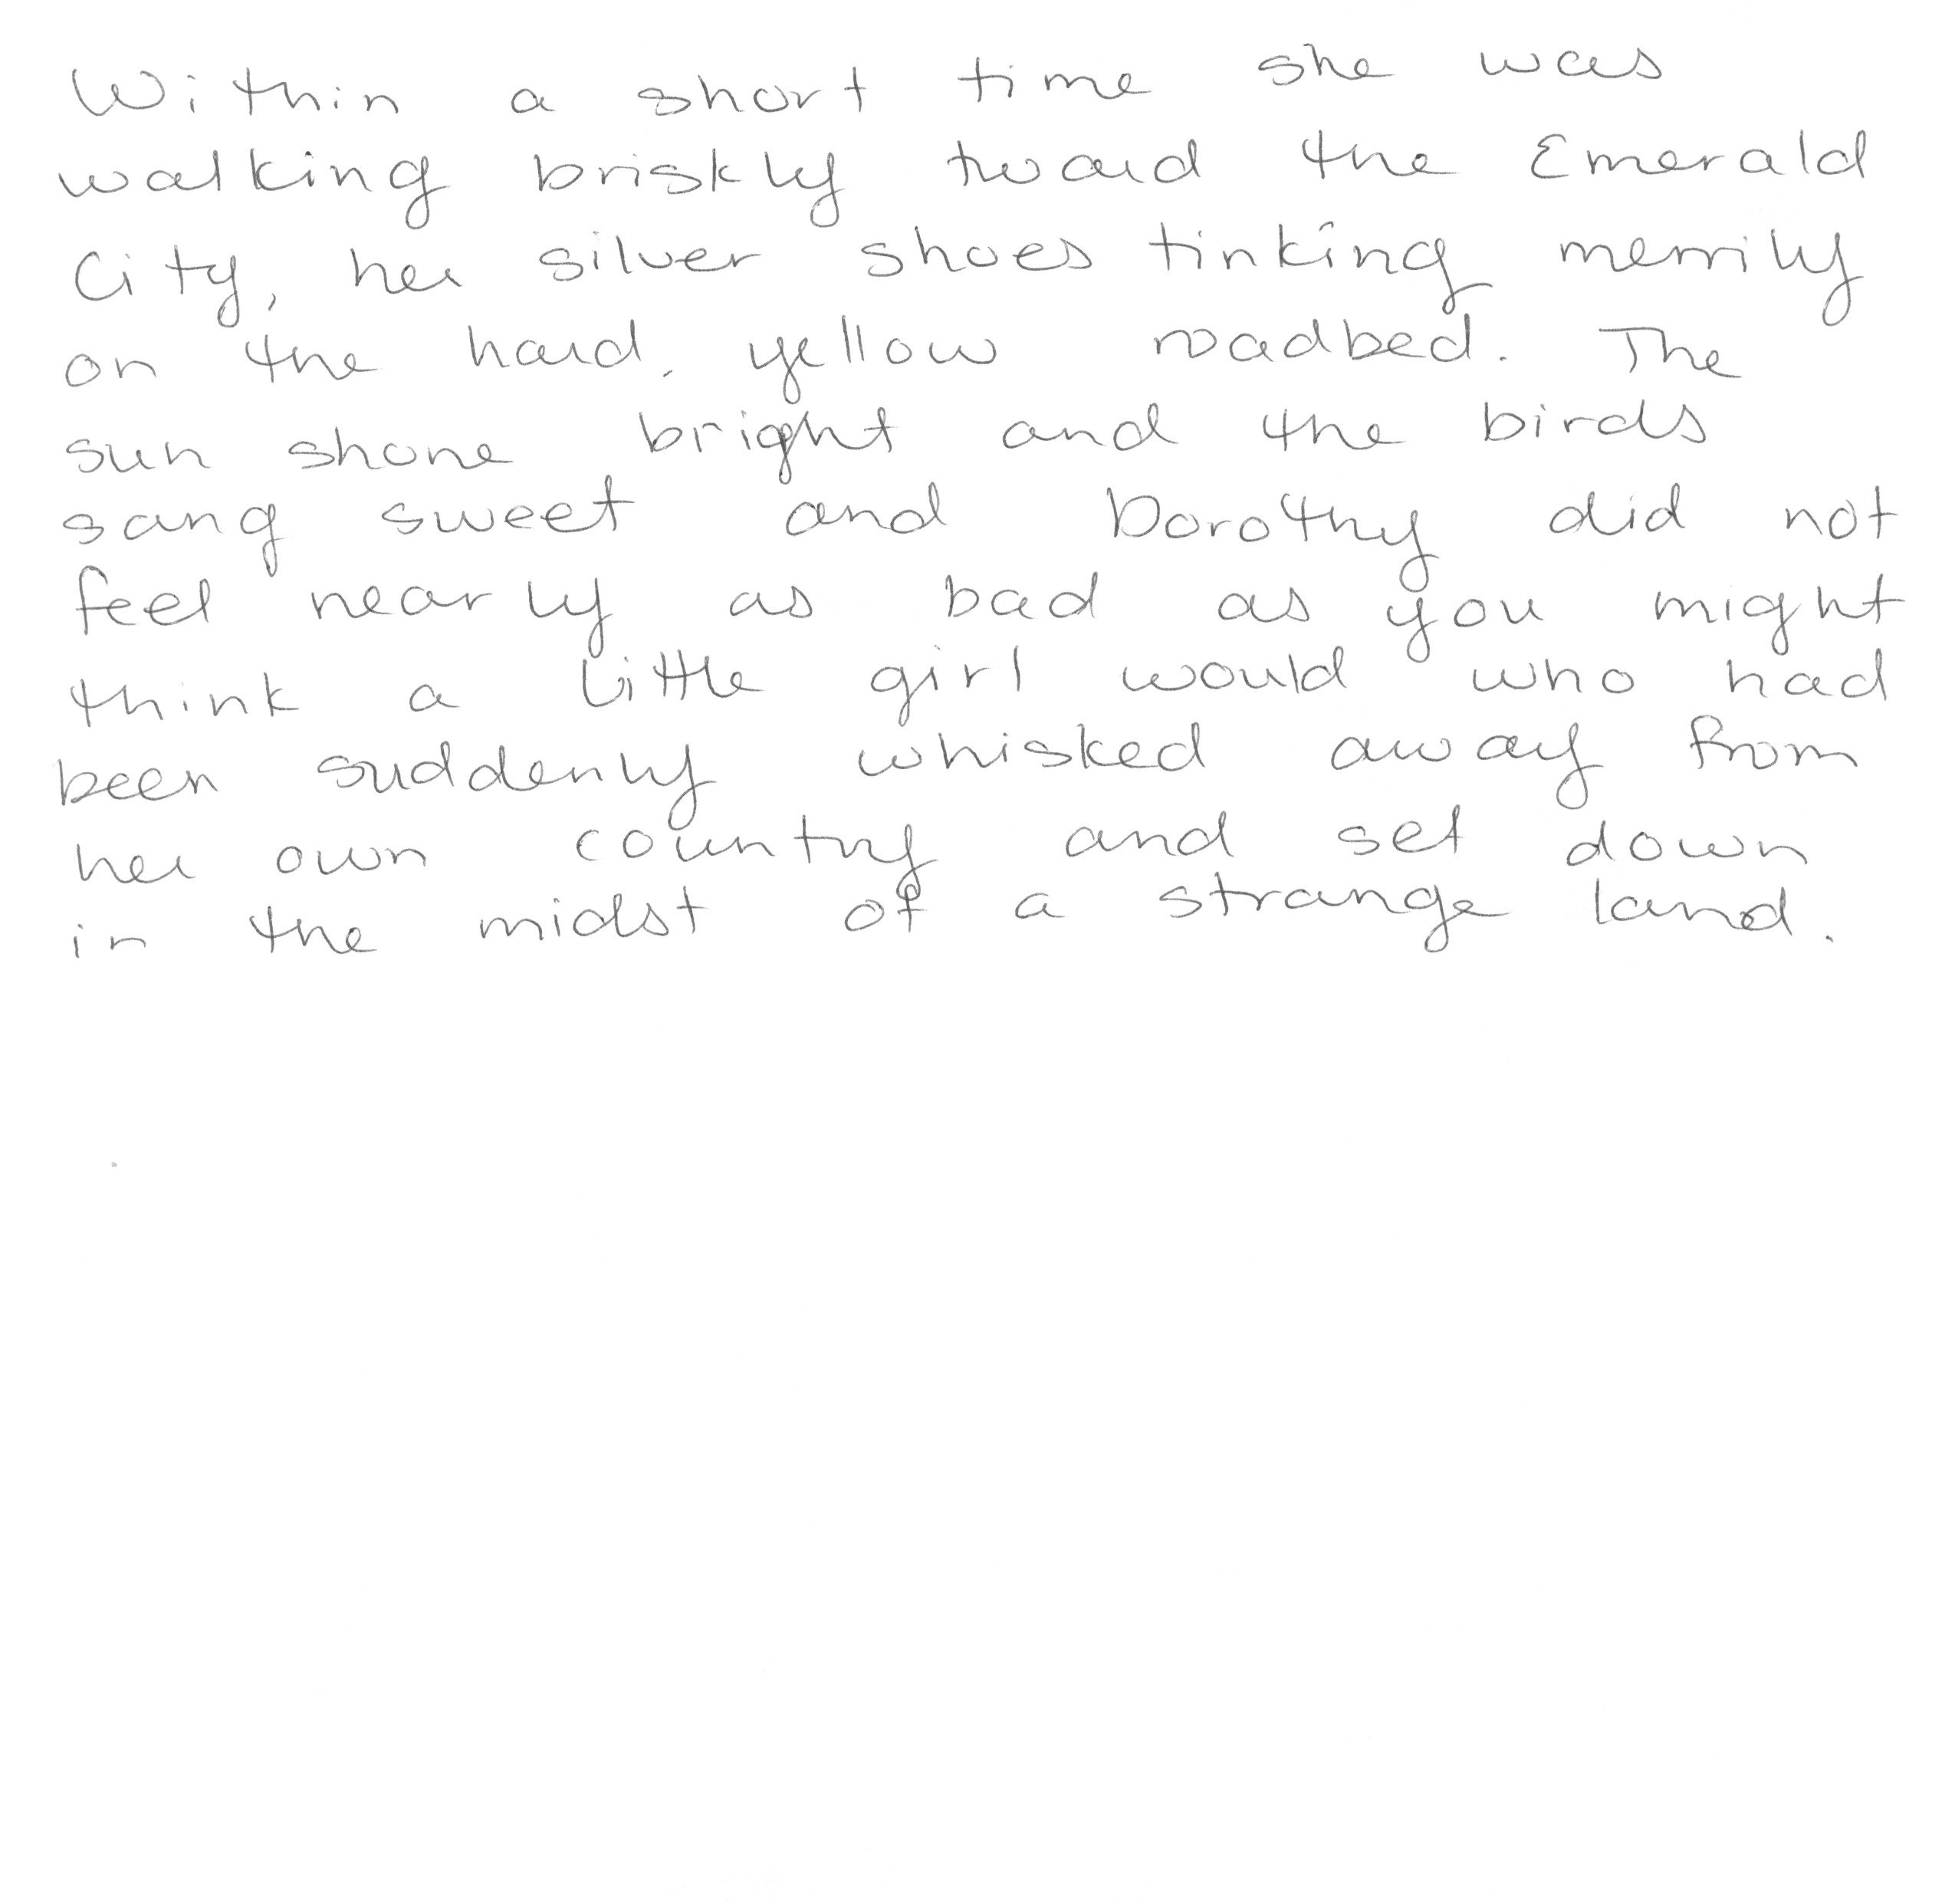 Within a short time she was
walking briskly twoard the Emerald
City, her silver shoes tinking merrily
on the hard, yellow roadbed. The
sun shone bright and the birds
sang sweet and Dorothy did not
feel nearly as bad as you might
think a little girl would who had
been suddenly whisked away from
her own country and set down
in the midst of a strange land.